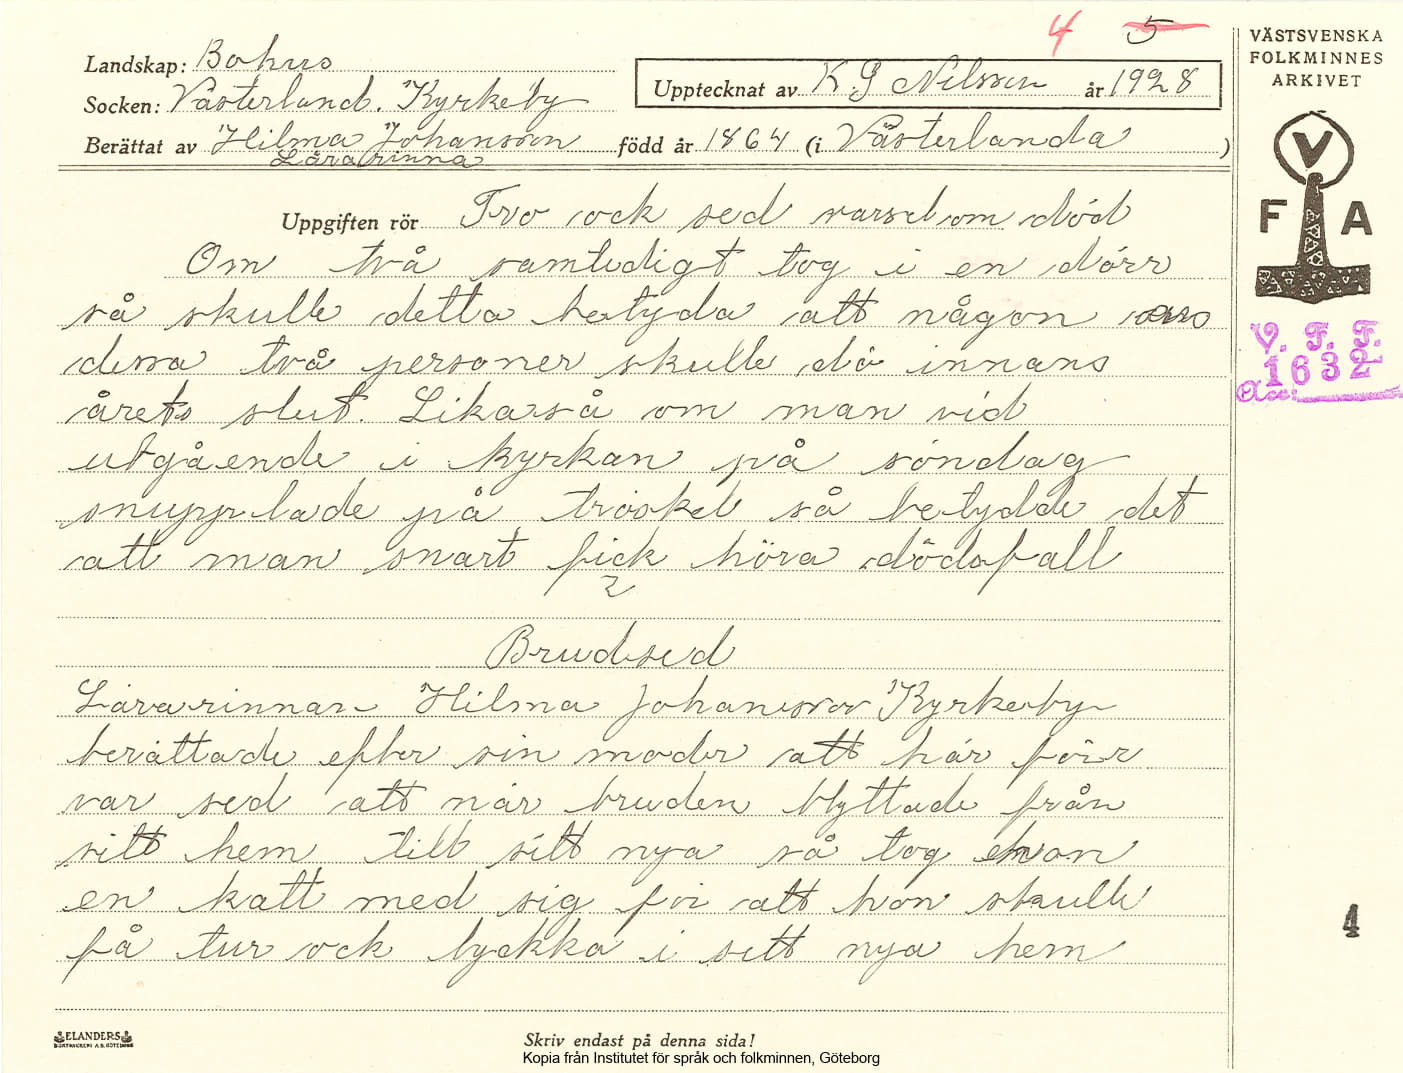 4 5
Landskap: Bohus
Socken: Västerland. Kyrkeby
Upptecknat av K G Nilsson år 1928
Berättat av Hilma Johansson född år 1864 (i Västerlanda )
Lärarinna
Uppgiften rör Tro ock sed varsel om död
Om två samtidigt tog i en dörr
så skulle detta betyda att någon av
dessa två personer skulle dö innans
årets slut. Likaså om man vid
utgående i kyrkan på söndag
snupplade på tröskel så betydde det
att man snart fick höra dödsfall
2
Brudsed
Lärarinnan Hilma Johansson Kyrkeby
berättade efter sin moder att här förr
var sed att när bruden flyttade från
sitt hem till sitt nya så tog hon
en katt med sig för att hon skulle
få tur ock lyckka i sett nya hem
ELANDERS
Skriv endast på denna sida!
Kopia från Institutet för språk och folkminnen, Göteborg
VÄSTSVENSKA
FOLKMINNES
ARKIVET
V
F A
V. F. F.
1632
Acc:
4